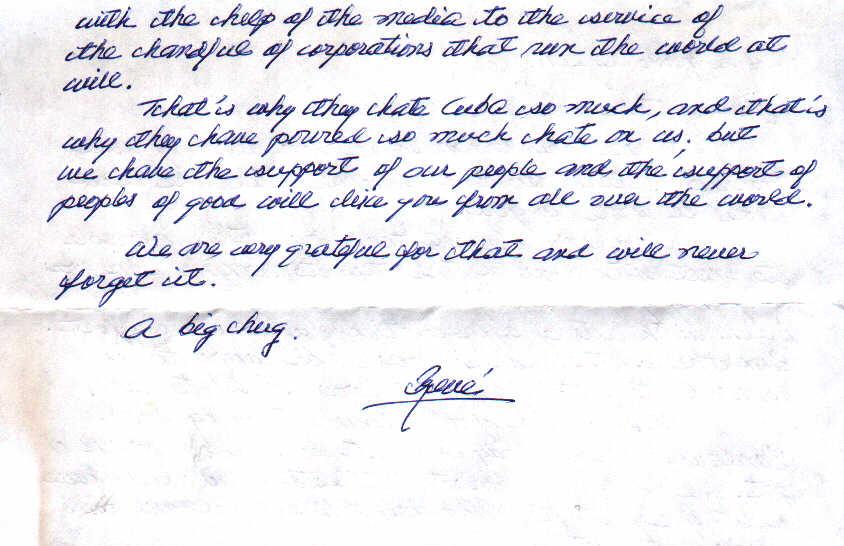 with the help of the media to the service of
the handful of corporations that run the world at
will.
That's why they hate Cuba so much, and that's
why they have poured so much hate on us. but
we have the support of our people and the support of
peoples of good will like you from all over the world.
We are very grateful for that and will never
forget it.
A big hug.
René